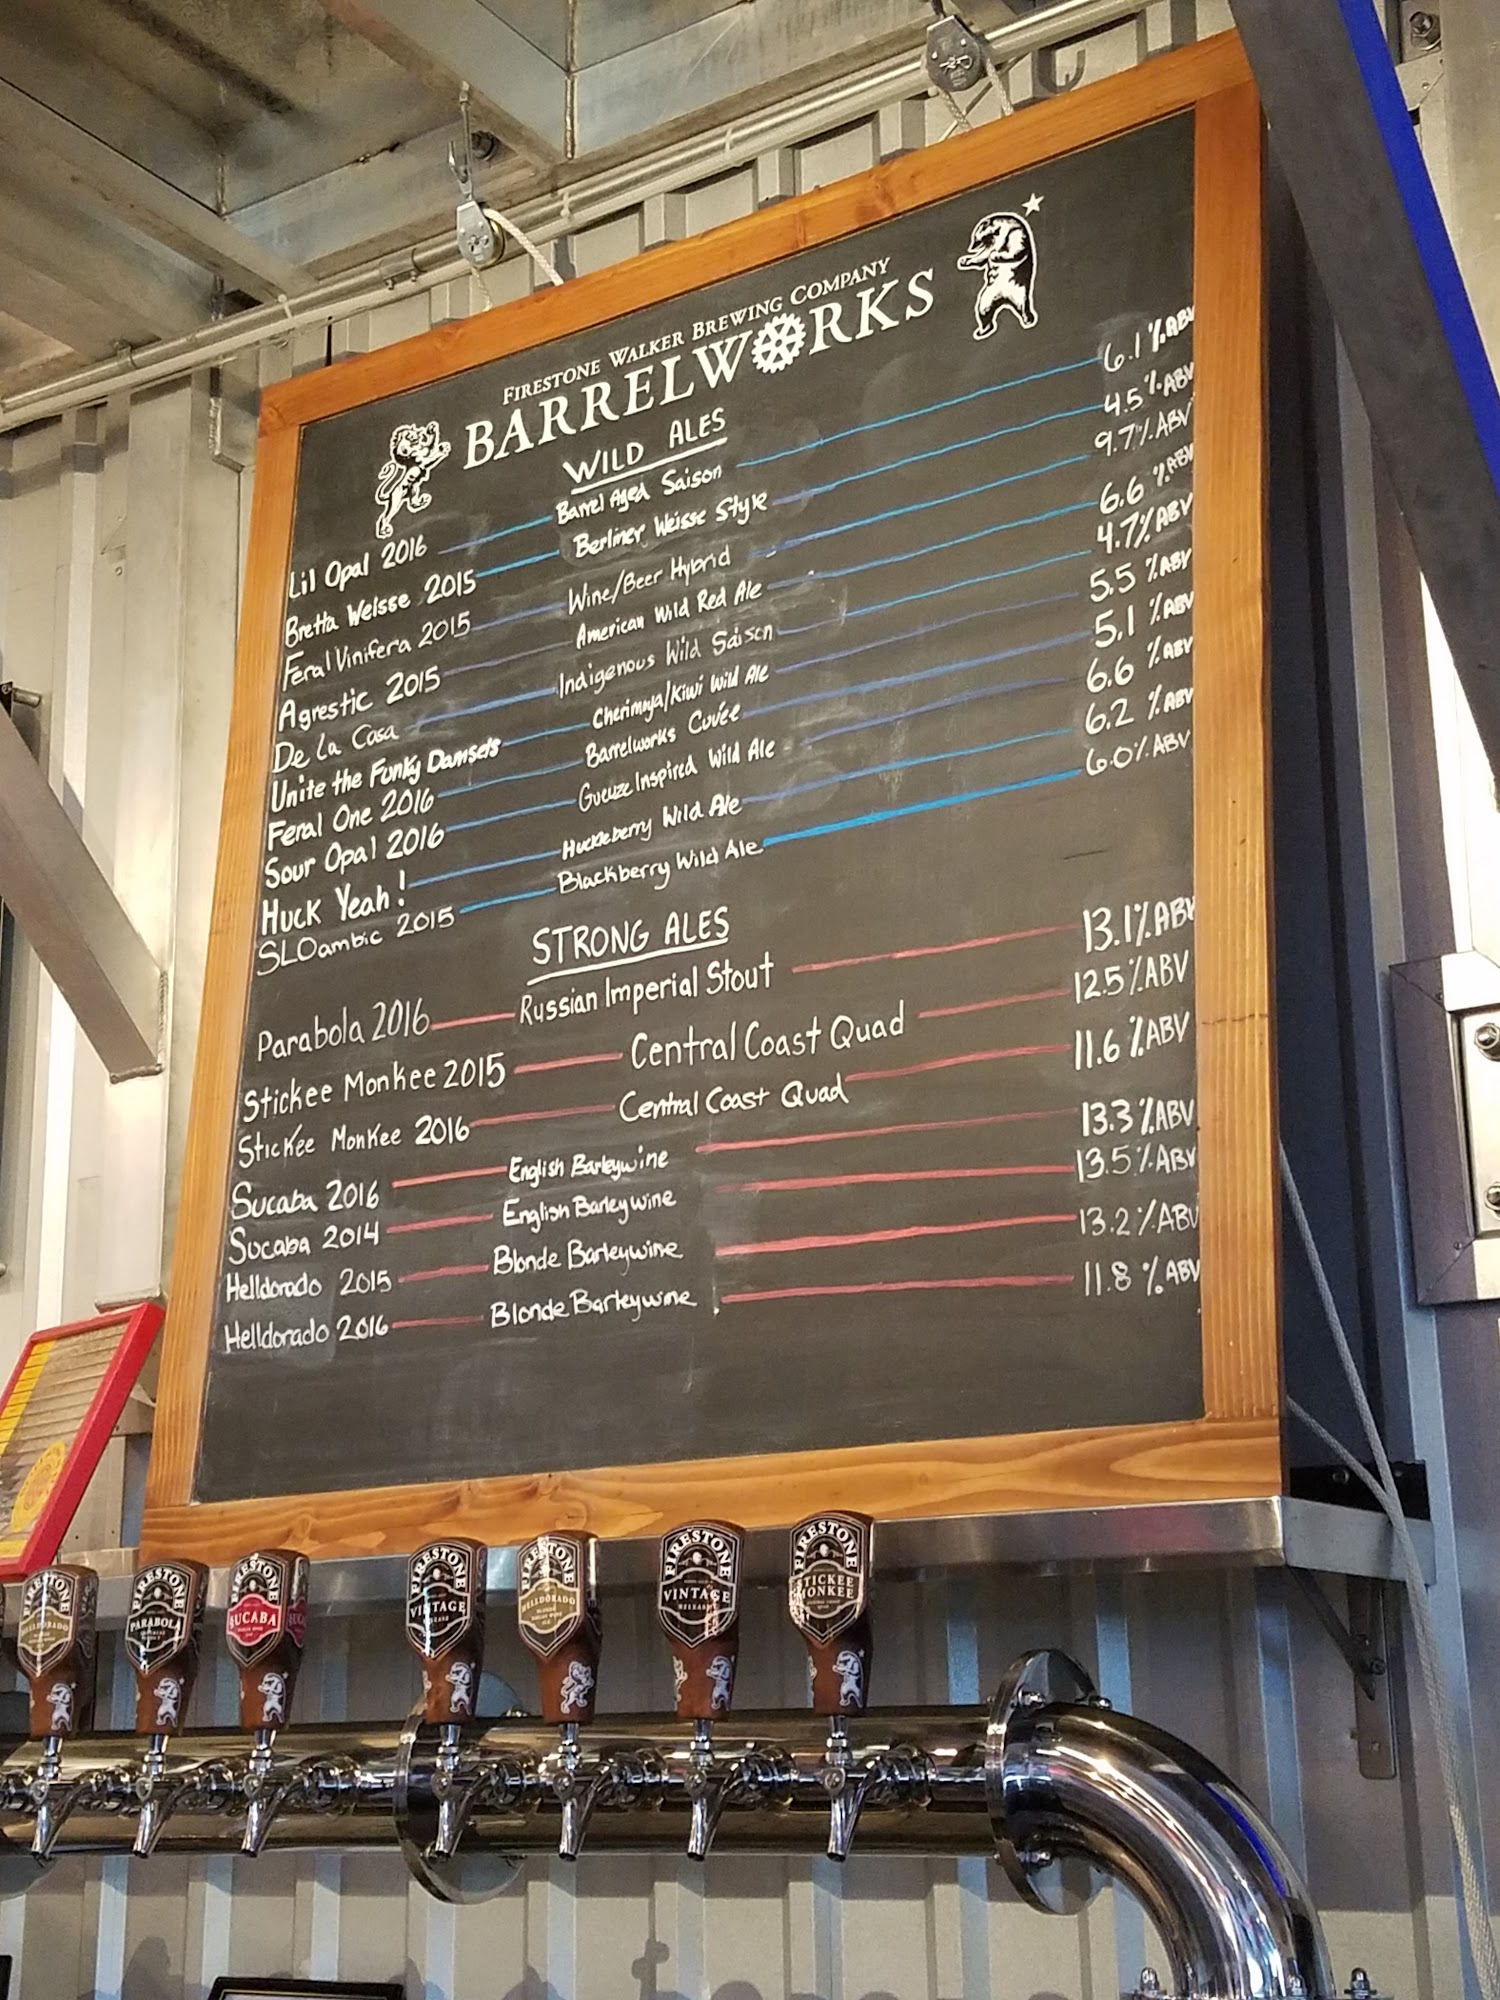 FIRESTONE WALKER BREWING COMPANY
BARRELWORKS
WILD ALES
Lil Opal 2016 Barrel Aged Saison 6.1% ABV
Bretta Weisse 2015 Berliner Weisse Style 4.5% ABV
Feral Vinifera 2015 Wine/Beer Hybrid 9.7% ABV
Agrestic 2015 American Wild Red Ale 6.6% ABV
De La Casa Indigenous Wild Saison 4.7% ABV
Unite the Funky Damsels Cherimoya/Kiwi Wild Ale 5.5% ABV
Feral One 2016 Barrelworks Cuvée 5.1% ABV
Sour Opal 2016 Gueuze Inspired Wild Ale 6.6% ABV
Huck Yeah! Huckleberry Wild Ale 6.2% ABV
SLOambic 2015 Blackberry Wild Ale 6.0% ABV
STRONG ALES
Parabola 2016 Russian Imperial Stout 13.1% ABV
Stickee Monkee 2015 Central Coast Quad 12.5% ABV
Stickee Monkee 2016 Central Coast Quad 11.6% ABV
Sucaba 2016 English Barleywine 13.3% ABV
Sucaba 2014 English Barleywine 13.5% ABV
Helldorado 2015 Blonde Barleywine 13.2% ABV
Helldorado 2016 Blonde Barleywine 11.8% ABV
FIRESTONE
HELLDORADO
FIRESTONE
PARABOLA
FIRESTONE
SUCABA
FIRESTONE
VINTAGE
FIRESTONE
HELLDORADO
FIRESTONE
VINTAGE
FIRESTONE
STICKEE
MONKEE